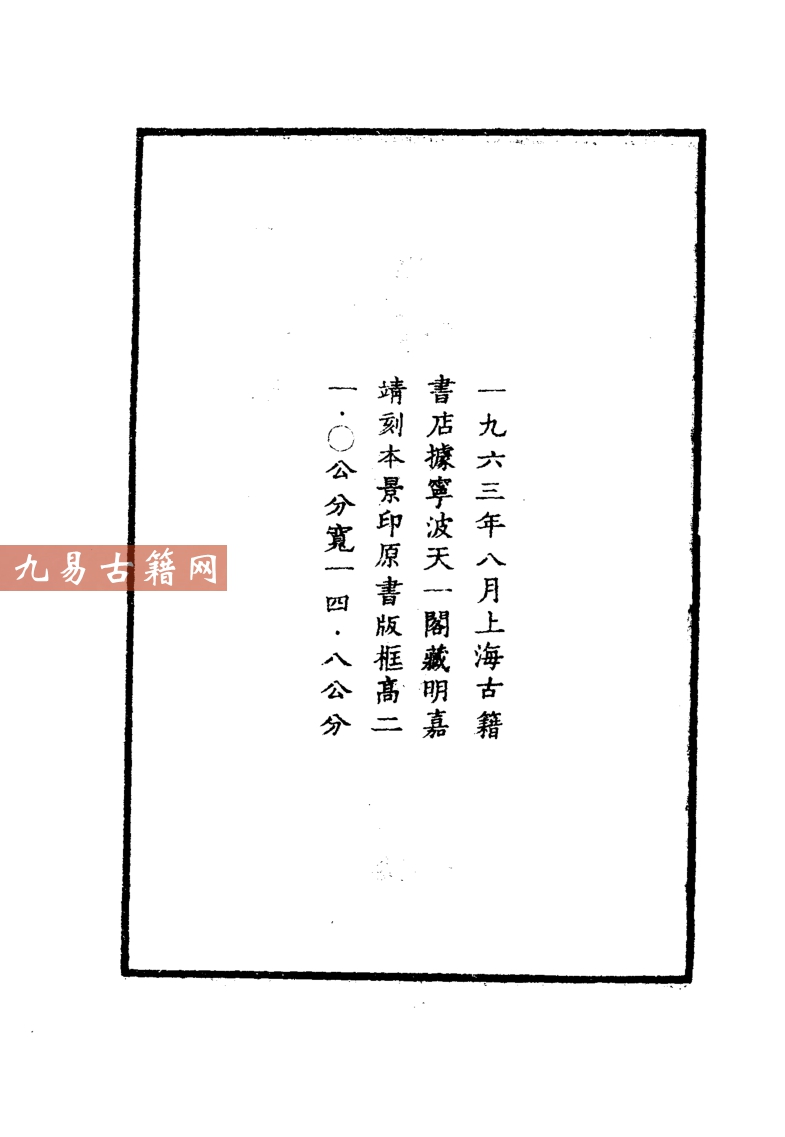 一九六三年八月上海古籍
書店據寧波天一閣藏明嘉
靖刻本景印原書版框高二
一·〇公分寬一四·八公分
九易古籍网